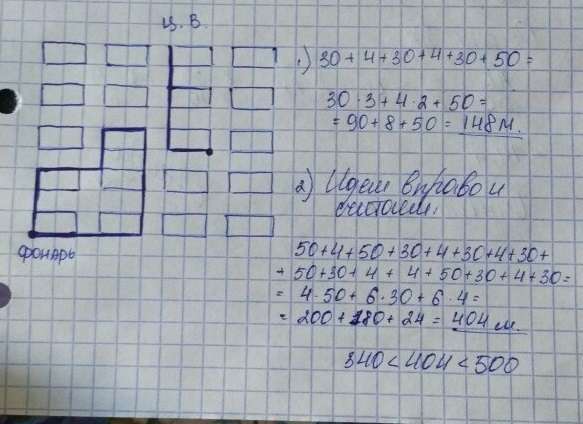 Ц. В.
1.) 30 + 4 + 30 + 4 + 30 + 50 =
30 · 3 + 4 · 2 + 50 =
= 90 + 8 + 50 = 148 м.
2) Идем вправо и
считаем:
50 + 4 + 50 + 30 + 4 + 30 + 4 + 30 +
+ 50 + 30 + 4 + 4 + 50 + 30 + 4 + 30 =
= 4 · 50 + 6 · 30 + 6 · 4 =
= 200 + 180 + 24 = 404 м.
340 < 404 < 500
фонарь